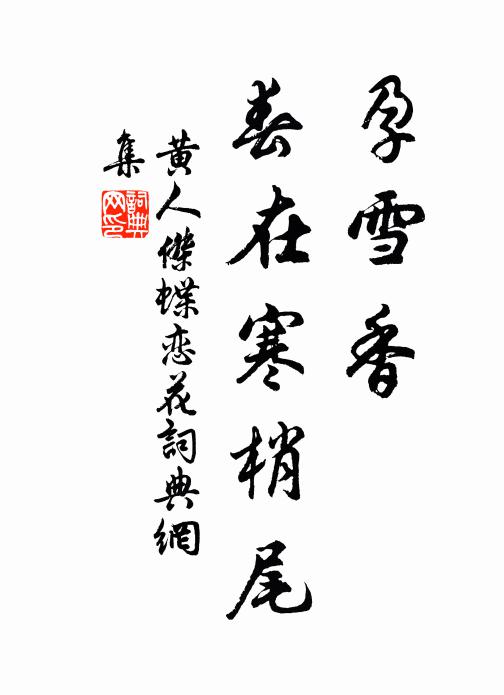 孕雪香
春在寒梢尾
黄人傑蝶恋花詞典網
集
詞典網印